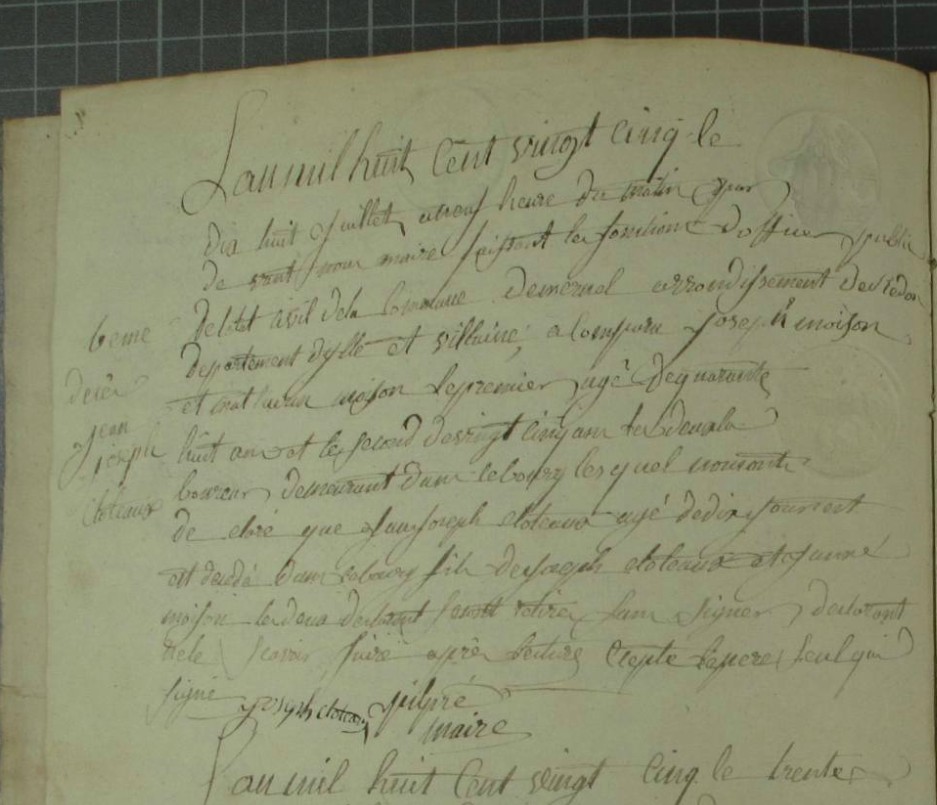 Lan mil huit Cent vingt cinq le
dix huit Juillet a neuf heure du matin par
de vant nous maire faissant les fonctions d'officier public
6eme
de letat civil de la Commune de mernel arrondissement de redon
departement dylle et villaine, a comparu joseph moison
decés
et mathurin moison le premier agé de quarante
jean
joseph
huit ans et le second de vingt cinq ans les deux la
boureur demeurant dans le bourg les quel nous ont
cloteaux
de claré que jean joseph cloteaux agé de dix jours est
est decedé dans le bourg fils de joseph cloteaux et janne
moison les deux declarant se sont retiré sans signer declarant
ne le savoir faire aprés lecture le pere seul qui
signe joseph cloteaux
maire
Lan mil huit Cent vingt cinq le trente